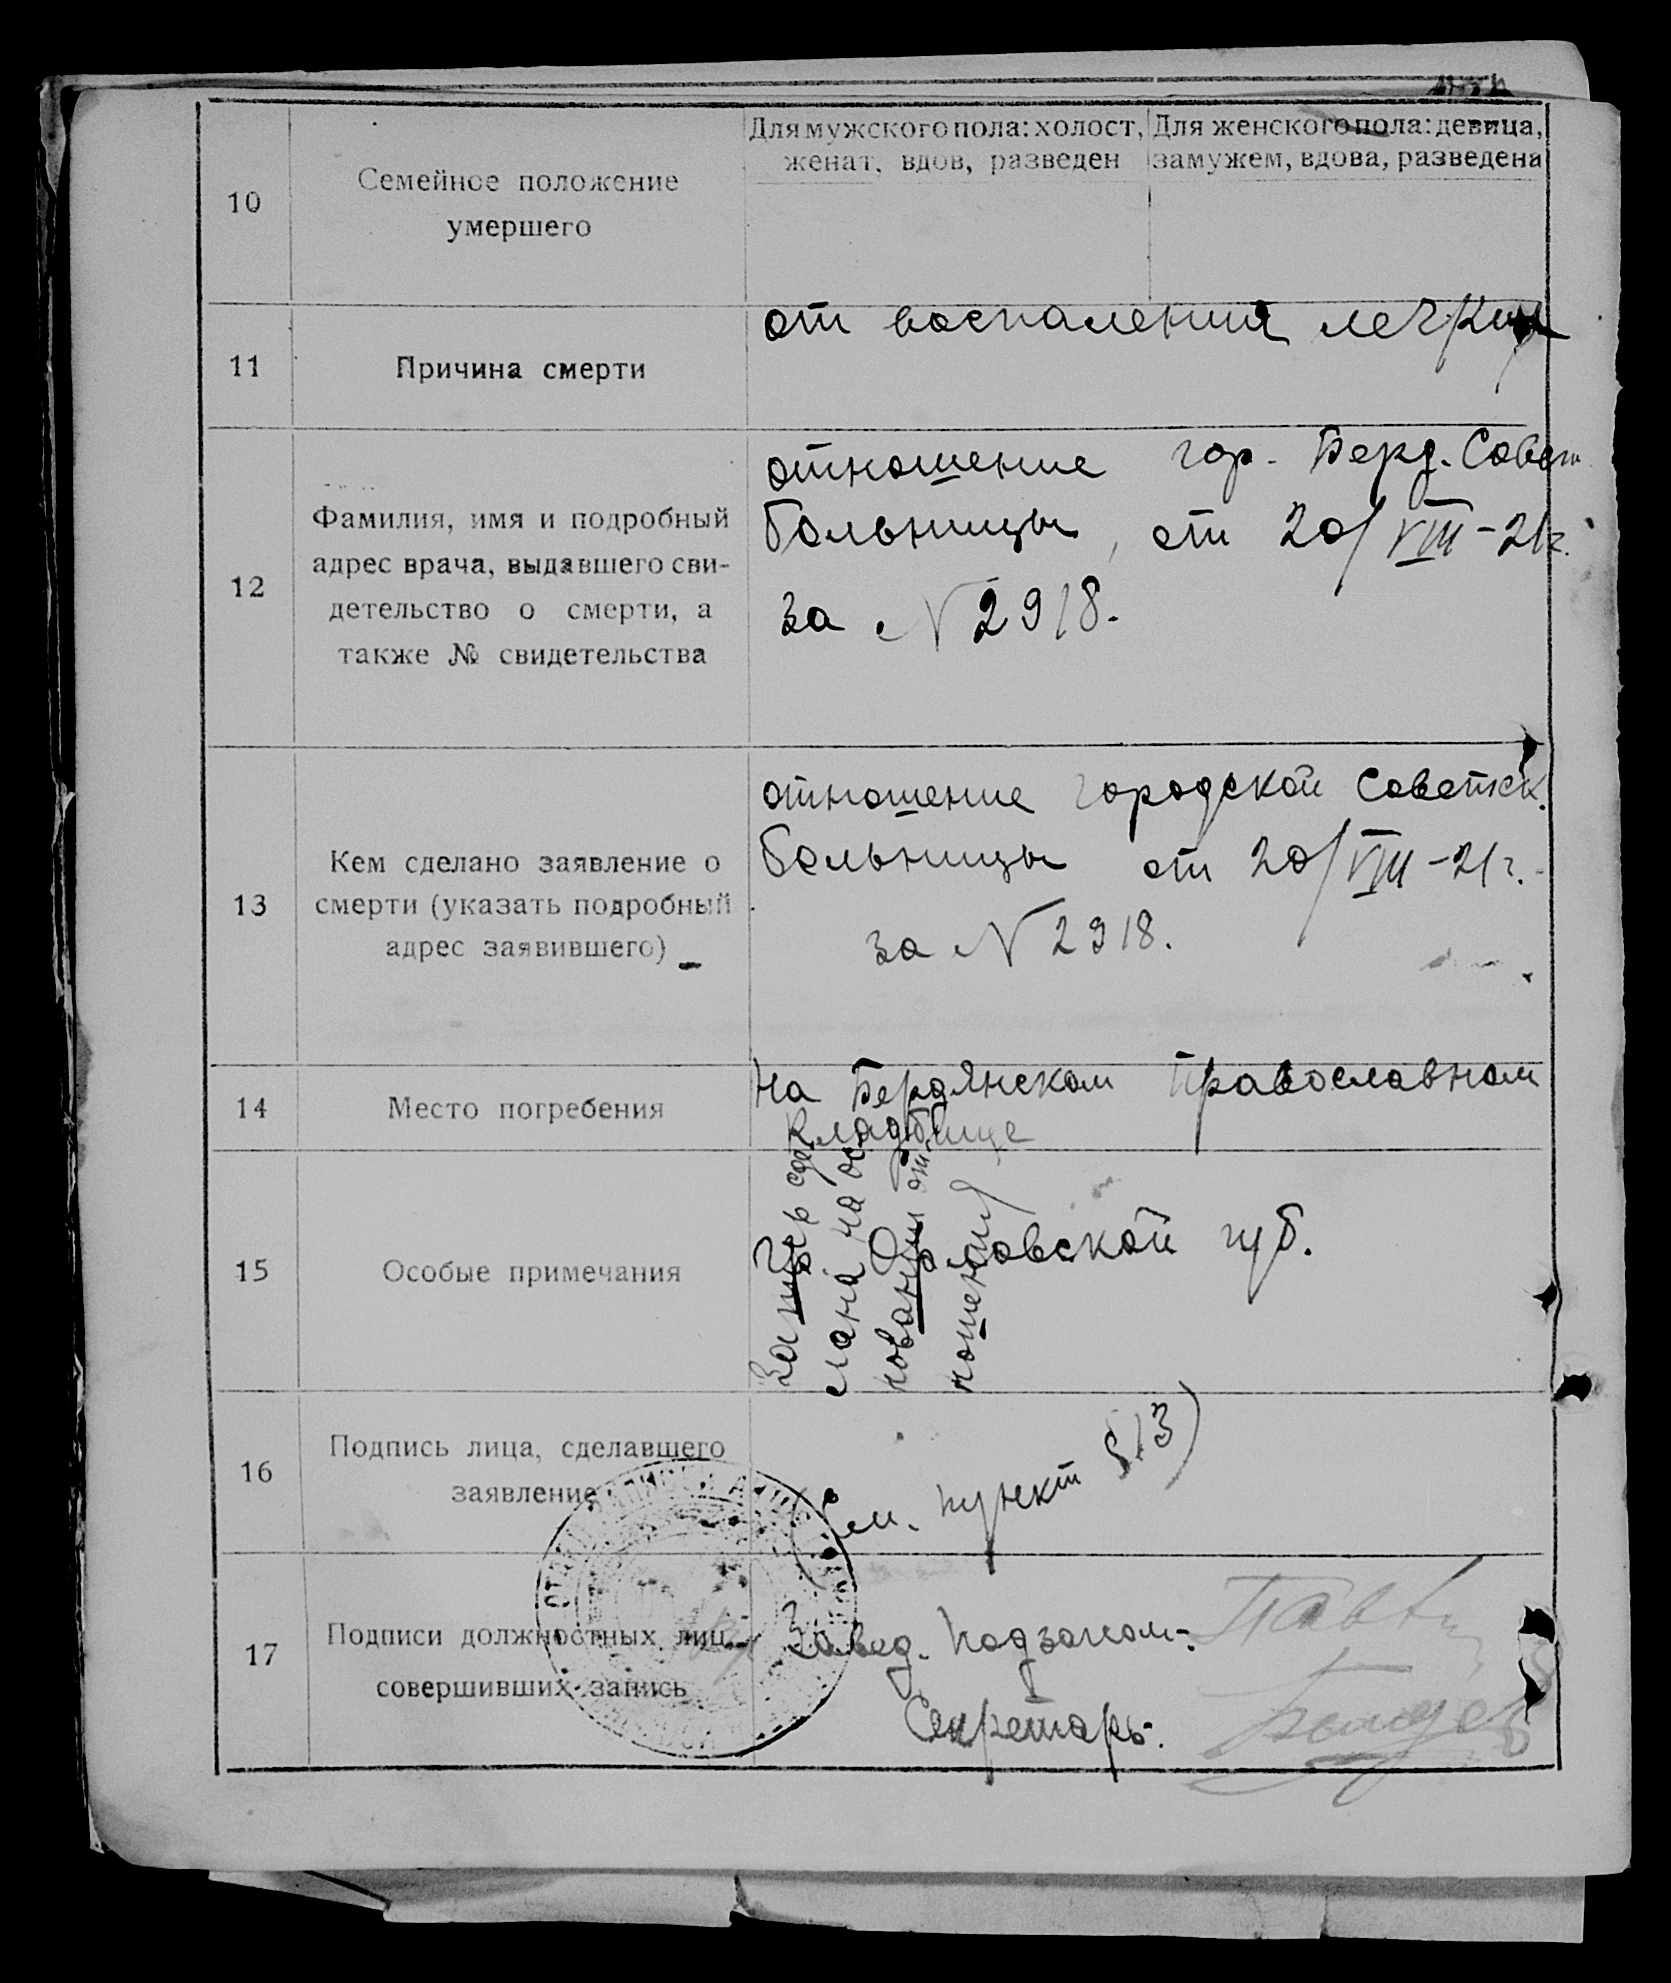 10
Семейное положение
умершего
Для мужского пола: холост,
женат, вдов, разведен
Для женского пола: девица,
замужем, вдова, разведена
11
Причина смерти
от воспаления легких
12
Фамилия, имя и подробный
адрес врача, выдавшего сви-
детельство о смерти, а
также № свидетельства
отношение гор. Берд. Совет.
больницы, от 20/VIII-21г.
за N 2918.
13
Кем сделано заявление о
смерти (указать подробный
адрес заявившего)
отношение городской советск.
больницы от 20/VIII-21г.
за N 2918.
14
Место погребения
на Бердянском православном
кладбище
15
Особые примечания
Запись сде
лана на ос
новании от
ношения
овской губ.
16
Подпись лица, сделавшего
заявление
(См. пункт §13)
17
Подписи должностных лиц,
совершивших запись
Завед. Подзагсом:
Секретарь: